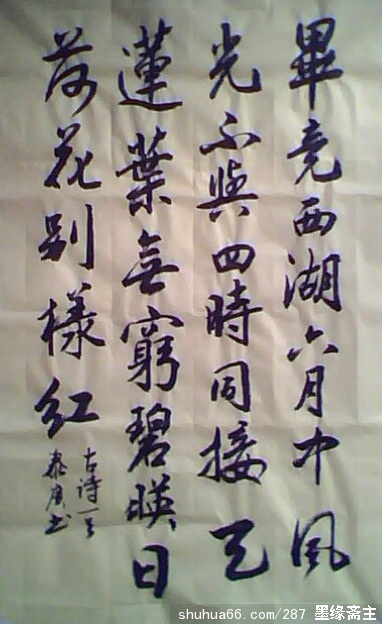 畢竟西湖六月中風
光不與四時同接天
蓮葉無窮碧暎日
荷花别樣红
古诗一首
泰康书
shuhua66.com/287 墨缘斋主